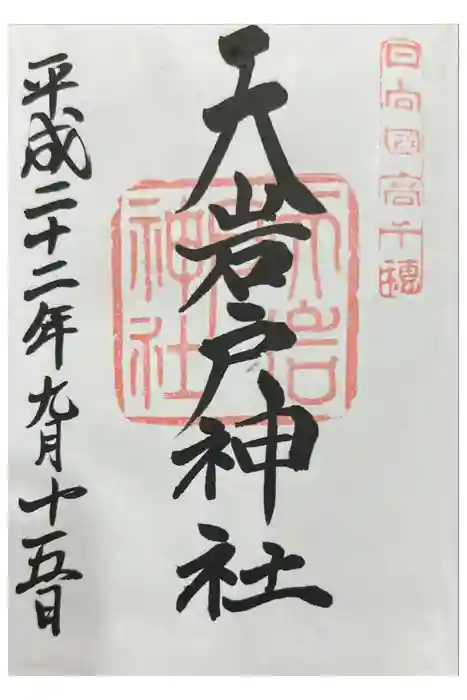 日向國高千穂
天岩戸神社
天岩戸神社
平成二十二年九月十五日